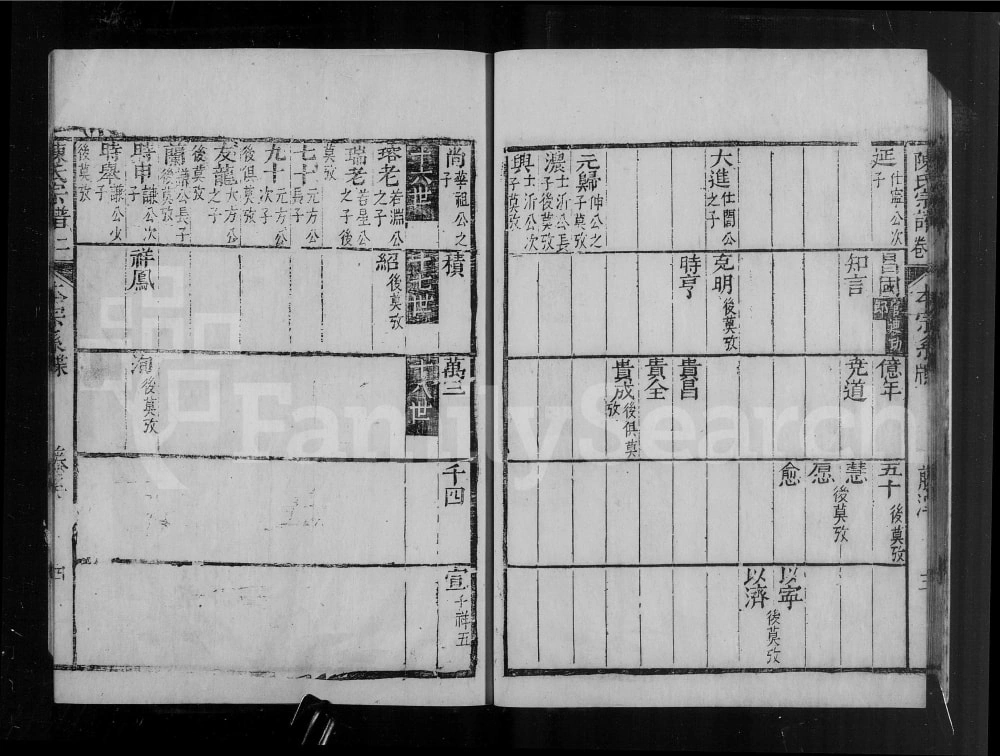 陳氏宗譜卷
本宗系牒
延 仕寧公次子
昌國
億年
五十 後莫攷
知言
堯道
慧 後莫攷
愿
愈
以寧
以濟 後莫攷
大進 仕閶公之子
克明 後莫攷
時亨
貴昌
貴全
貴成 後俱莫攷
元歸 伸公之子莫攷
濃 士沂公長子後莫攷
興 士沂公次子莫攷
尚 華祖公之子
積
萬三
千四
宣 千祥五
十六世
十七世
十八世
瑢老 若淵公之子
紹 後莫攷
瑞老 若星公之子後莫攷
七十 元方公長子
九十 元方公次子後俱莫攷
友龍 大方公之子後莫攷
蘭 謙公長子後莫攷
時申 謙公次子
祥鳳
海 後莫攷
時舉 謙公少子後莫攷
陳氏宗譜
本宗系牒
四
FamilySearch